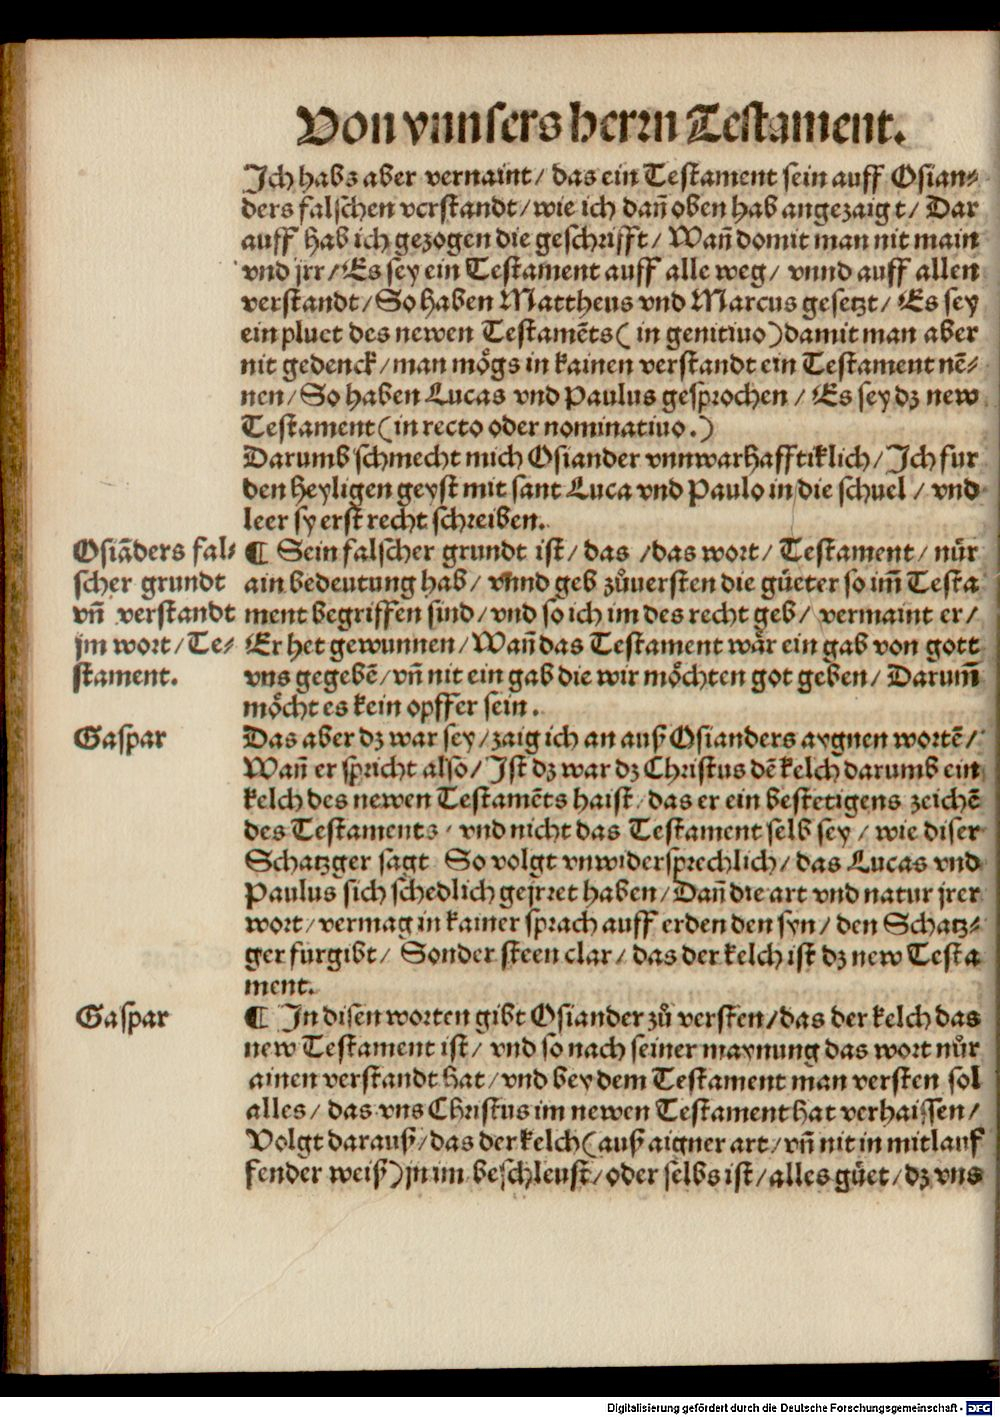 Von vnnsers herrn Testament.
Ich habs aber vernaint / das ein Testament sein auff Osian⸗
ders falschen verstandt / wie ich dañ oben hab angezaigt / Dar
auff hab ich gezogen die geschrifft / Wañ domit man nit main
vnd jrr / Es sey ein Testament auff alle weg / vnnd auff allen
verstandt / So haben Mattheus vnd Marcus gesetzt / Es sey
ein pluet des newen Testamēts ( in genitiuo ) damit man aber
nit gedenck / man mögs in kainen verstandt ein Testament nē⸗
nen / So haben Lucas vnd Paulus gesprochen / Es sey dz new
Testament ( in recto oder nominatiuo . )
Darumb schmecht mich Osiander vnnwarhafftiklich / Ich fur
den heyligen geyst mit sant Luca vnd Paulo in die schuel / vnd
leer sy erst recht schreiben.
Osiāders fal⸗
scher grundt
vñ verstandt
jm wort / Te⸗
stament.
¶ Sein falscher grundt ist / das / das wort / Testament / nůr
ain bedeutung hab / vnnd geb zůuersten die gůeter so im̃ Testa
ment begriffen sind / vnd so ich im des recht geb / vermaint er /
Er het gewunnen / Wañ das Testament wår ein gab von gott
vns gegebē / vñ nit ein gab die wir möchten got geben / Darum̃
möcht es kein opffer sein .
Gaspar
Das aber dz war sey / zaig ich an auß Osianders aygnen wortē /
Wañ er spricht also / Ist dz war dz Christus dē kelch darumb ein
kelch des newen Testamēts haist / das er ein bestetigens zeichē
des Testaments / vnd nicht das Testament selb sey / wie diser
Schatzger sagt So volgt vnwidersprechlich / das Lucas vnd
Paulus sich schedlich gejrret haben / Dañ die art vnd natur jrer
wort / vermag in kainer sprach auff erden den syn / den Schatz⸗
ger furgibt / Sonder steen clar / das der kelch ist dz new Testa
ment.
Gaspar
¶ In disen worten gibt Osiander zů versten / das der kelch das
new Testament ist / vnd so nach seiner maynung das wort nůr
ainen verstandt hat / vnd bey dem Testament man versten sol
alles / das vns Christus im newen Testament hat verhaissen /
Volgt darauß / das der kelch ( auß aigner art / vñ nit in mitlauf
fender weiß ) jn im beschleust / oder selbs ist / alles gůet / dz vns
Digitalisierung gefördert durch die Deutsche Forschungsgemeinschaft - DFG